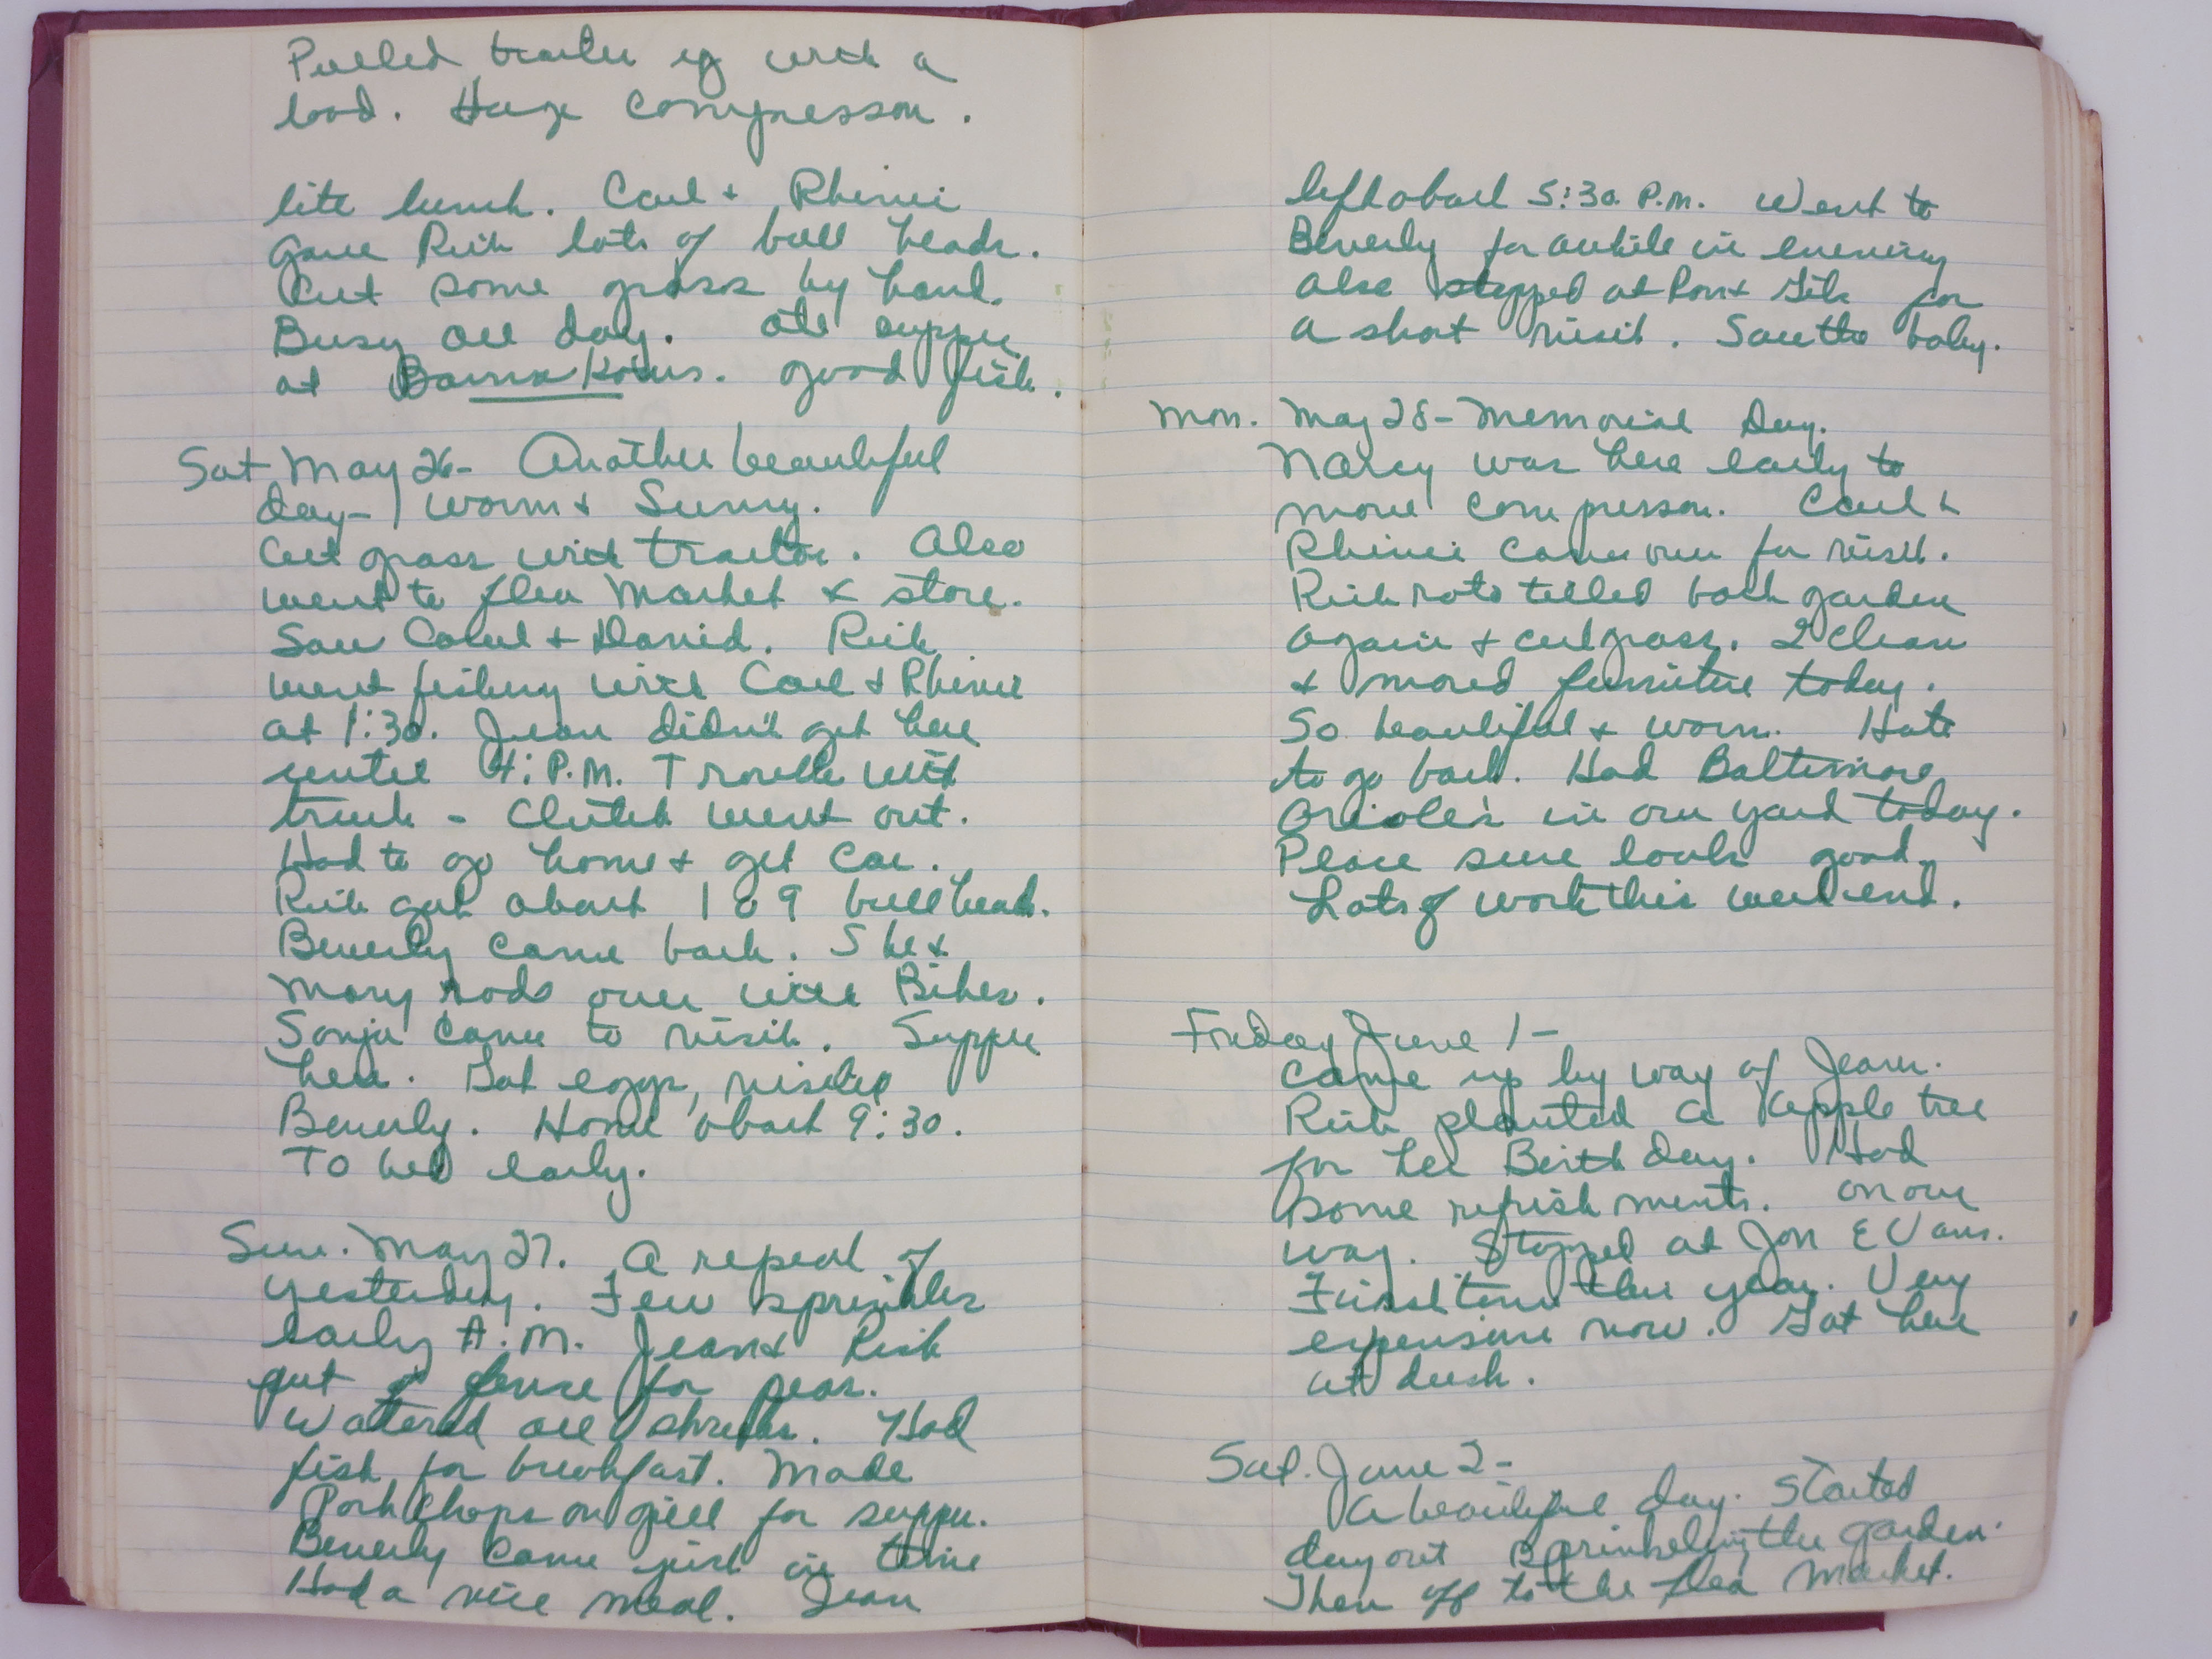 Pulled trailer up with a
load. Huge compressor.
lite lunch. Carl + Rhinie
gave Rich lots of bull heads.
Cut some grass by hand.
Busy all day. Ate supper
at . good fish.
Sat May 26- Another beautiful
day- warm + Sunny.
Cut grass with tractor. Also
went to flea Market & store.
Saw Carol + David. Rich
went fishing with Carl + Rhinie
at 1:30. Jean didn't get here
until 4: P.M. Trouble with
truck - Clutch went out.
Had to go home + get Car.
Rich got about bull heads.
Beverly came back. She +
Mary rode over with Bikes.
Sonja came to visit. Supper
here. Got eggs, visited
Beverly. Home about 9:30.
To bed early.
Sun. May 27. A repeat of
yesterday. Few sprinkles
early A.M. Jean + Rich
put fence for peas.
Watered all shrubs. Had
fish for breakfast. Made
Pork Chops on grill for supper.
Beverly came just in time
Had a nice meal. Jean
left about 5:30 P.M. Went to
Beverly for awhile in evening
also stopped at Ron + for
a short visit. Saw the baby.
Mon. May 28 - Memorial Day.
was here early to
move compressor. Carl +
Rhinie came over for visit.
Rich roto tilled back garden
again + cut grass. I Clean
+ moved furniture today.
So beautiful + warm. Hate
to go back. Had Baltimore
Oriole's in our yard today.
Place sure looks good.
Lots of work this weekend.
Friday June 1 -
Came up by way of Jean.
Rich planted a apple tree
for her Birthday. Had
some refreshments. on our
way. Stopped at Jon Evans.
First time this year. Very
expensive now. Got here
at dusk.
Sat. June 2 -
A beautiful day. Started
day out sprinkeling the garden.
Then off to the flea Market.